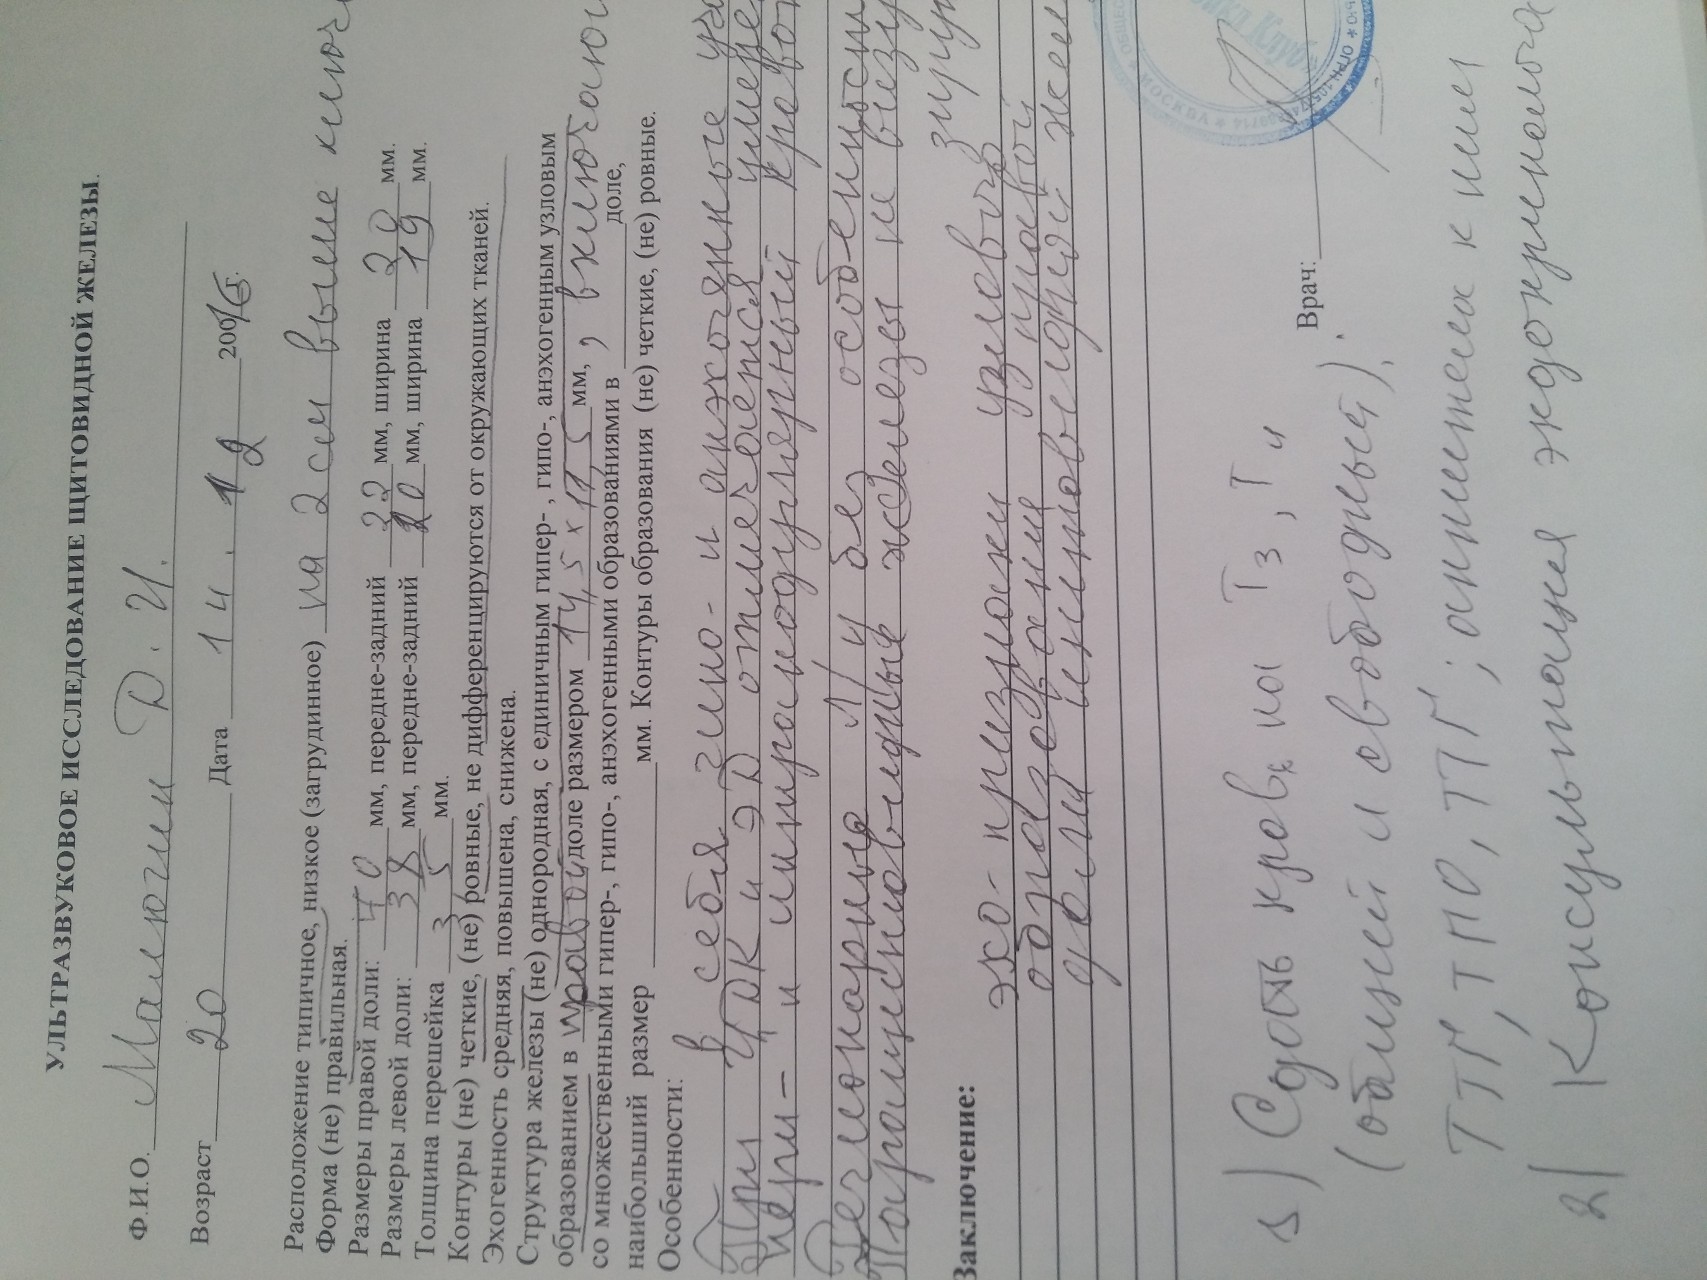 УЛЬТРАЗВУКОВОЕ ИССЛЕДОВАНИЕ ЩИТОВИДНОЙ ЖЕЛЕЗЫ.
Ф.И.О. Малюгин Д. И.
Возраст 20 Дата 14. 12 200 г.
Расположение типичное, низкое (загрудинное) на 2 см выше
Форма (не) правильная.
Размеры правой доли: 40 мм, передне-задний 22 мм, ширина 20 мм.
Размеры левой доли: 38 мм, передне-задний 20 мм, ширина 19 мм.
Толщина перешейка 3, 5 мм.
Контуры (не) четкие, (не) ровные, не дифференцируются от окружающих тканей.
Эхогенность средняя, повышена, снижена.
Структура железы (не) однородная, с единичным гипер- , гипо-, анэхогенным узловым
образованием в правой доле размером 14,5 х 11,5 мм, , включ
со множественными гипер-, гипо-, анэхогенными образованиями в доле,
наибольший размер мм. Контуры образования (не) четкие, (не) ровные.
Особенности: в себя гипо- и анэхогенные
При ЦДК и ЭД отмечается
пери- и интранодулярный кровот
Регионарные л/у без особенност
Паращитовидные железы не визу
Заключение: эхо- признаки узлового
образования правой
доли щитовидной жел
Врач:
МОСКВА
1) Сдать кровь на Т3, Т4
(общий и свободный),
ТТГ, ТПО, ТГ; антитела к ним
2) Консультация эндокринолога